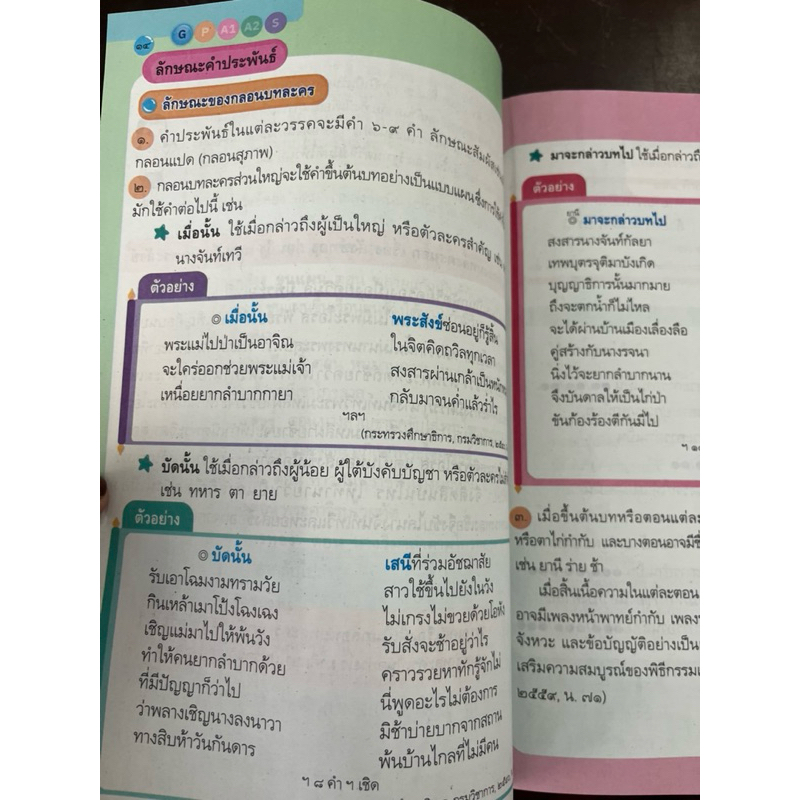 ๑๔
G P A1 A2 S
ลักษณะคำประพันธ์
ลักษณะของกลอนบทละคร
๑. คำประพันธ์ในแต่ละวรรคจะมีคำ ๖-๙ คำ ลักษณะสัมผัส
กลอนแปด (กลอนสุภาพ)
๒. กลอนบทละครส่วนใหญ่จะใช้คำขึ้นต้นบทอย่างเป็นแบบแผน
มักใช้คำต่อไปนี้ เช่น
เมื่อนั้น ใช้เมื่อกล่าวถึงผู้เป็นใหญ่ หรือตัวละครสำคัญ เช่น
นางจันท์เทวี
ตัวอย่าง
๏ เมื่อนั้น พระสังข์ซ่อนอยู่ก็รู้สิ้น
พระแม่ไปป่าเป็นอาจิณ ในจิตคิดถวิลทุกเวลา
จะใคร่ออกช่วยพระแม่เจ้า สงสารผ่านเกล้าเป็นหนัก
เหนื่อยยากลำบากกายา กลับมาจนค่ำแล้วร่ำไร
ฯลฯ
(กระทรวงศึกษาธิการ, กรมวิชาการ,
บัดนั้น ใช้เมื่อกล่าวถึงผู้น้อย ผู้ใต้บังคับบัญชา หรือตัวละคร
เช่น ทหาร ตา ยาย
ตัวอย่าง
๏ บัดนั้น เสนีที่ร่วมอัชฌาสัย
รับเอาโฉมงามทรามวัย สาวใช้ขึ้นไปยังในวัง
กินเหล้าเมาโป้งโฉงเฉง ไม่เกรงไม่ขวยด้วยโอหัง
เชิญแม่มาไปให้พ้นวัง รับสั่งจะช้าอยู่ว่าไร
ทำให้คนยากลำบากด้วย คราวรวยหาทักรู้จักไม่
ที่มีปัญญาก็ว่าไป นี่พูดอะไรไม่ต้องการ
ว่าพลางเชิญนางลงนาวา มิช้าบ่ายบากจากสถาน
ทางสิบห้าวันกันดาร พ้นบ้านไกลที่ไม่มีคน
ฯ ๘ คำ ฯ เชิด
กรมวิชาการ,
มาจะกล่าวบทไป ใช้เมื่อกล่าวถึ
ตัวอย่าง
๏ มาจะกล่าวบทไป
สงสารนางจันท์กัลยา
เทพบุตรจุติมาบังเกิด
บุญญาธิการนั้นมากมาย
ถึงจะตกน้ำก็ไม่ไหล
จะได้ผ่านบ้านเมืองเลื่องลือ
คู่สร้างกับนางรจนา
นิ่งไว้จะยากลำบากนาน
จึงบันดาลให้เป็นไก่ป่า
ขันก้องร้องตีกันมี่ไป
๓. เมื่อขึ้นต้นบทหรือตอนแต่ละ
หรือตาไก่กำกับ และบางตอนอาจมีชื่
เช่น ยานี ร่าย ช้า
เมื่อสิ้นเนื้อความในแต่ละตอน
อาจมีเพลงหน้าพาทย์กำกับ เพลง
จังหวะ และข้อบัญญัติอย่างเป็น
เสริมความสมบูรณ์ของพิธีกรรม
๒๕๕๙, น. ๗๑)